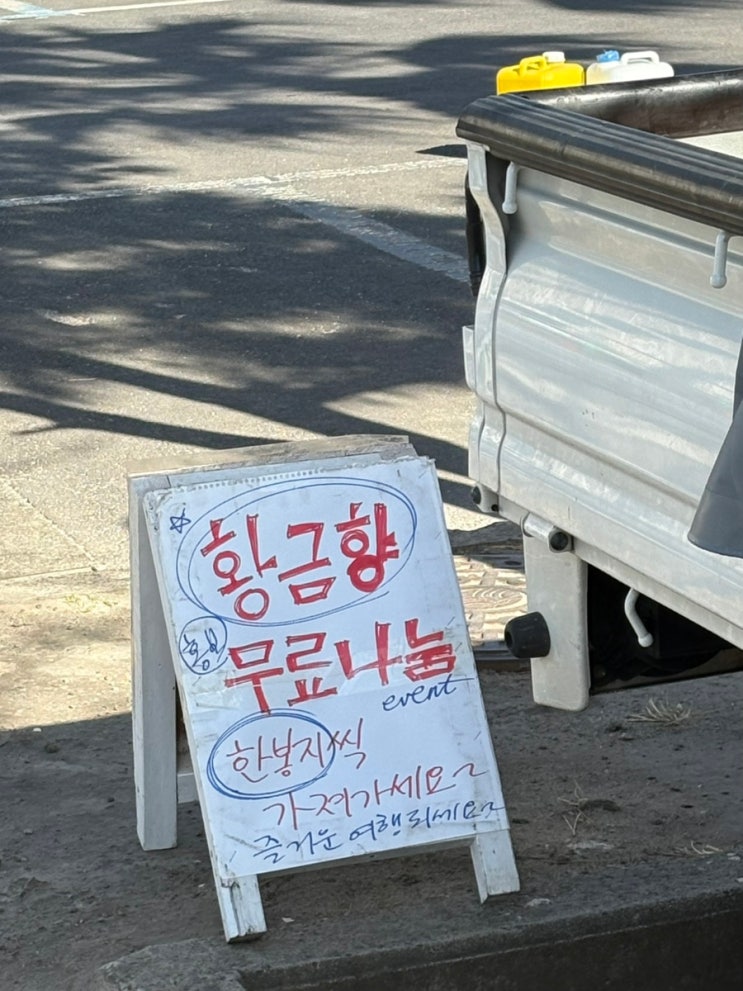 황금향
홍보
무료나눔
event
한봉지씩
가져가세요~
즐거운 여행되세요~